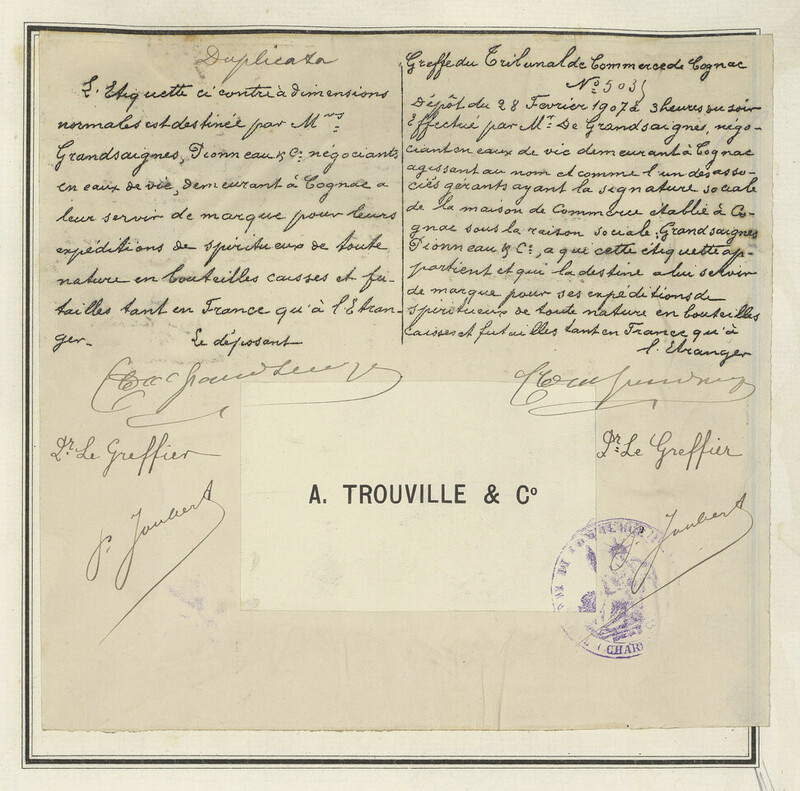 Duplicata
L'Etiquette ci contre à dimensions
normales est destinée par Mrs
Grandsaignes, Pionneau & Cie négociants
en eaux de vie, demeurant à Cognac a
leur servir de marque pour leurs
expéditions de spiritueux de toute
nature en bouteilles caisses et fu-
tailles tant en France qu'à l'Etran-
ger.
Le déposant
Pr Le Greffier
P. Joubert
Greffe du Tribunal de Commerce de Cognac
No 5035
Dépôt du 28 Fevrier 1907 à 3 heures du soir
Effectué par Mr De Grandsaignes, négo-
ciant en eaux de vie demeurant à Cognac
agissant au nom et comme l'un des asso-
ciés gérants ayant la signature sociale
de la maison de Commerce établie à Co-
gnac sous la raison sociale, Grandsaignes
Pionneau & Cie, a que cette étiquette ap-
partient et qui la destine a lui servir
de marque pour ses expéditions de
spiritueux de toute nature en bouteilles
caisses et futailles tant en France qu'à
l'Etranger
Pr Le Greffier
P. Joubert
A. TROUVILLE & Co